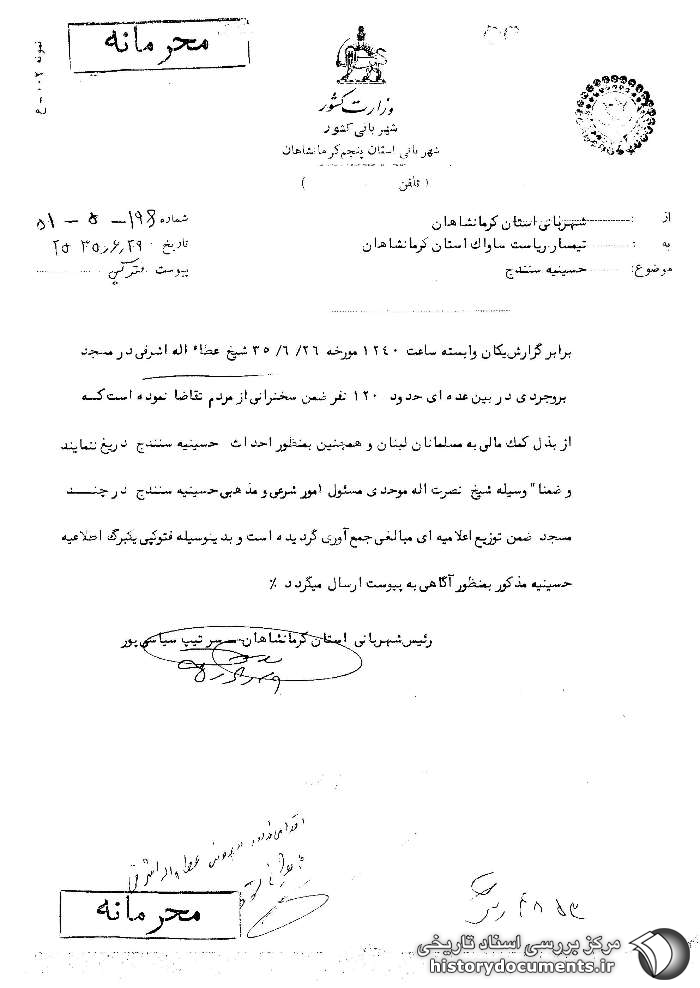 محرمانه
نمونه ۱۰۲ – ع
وزارت کشور
شهربانی کشور
شهربانی استان پنجم کرمانشاهان
( تلفن )
شماره ۱۹۸ – ۵ – ۵۱
تاریخ ۲۵۳۵٫۶٫۲۹
پیوست فتوکپی
از : شهربانی استان کرمانشاهان
به : تیمسار ریاست ساواک استان کرمانشاهان
موضوع : حسینیه سنندج
برابر گزارش یکان وابسته ساعت ۱۲۴۰ مورخه ۳۵/۶/۲۶ شیخ عطاء اله اشرفی در مسجد
بروجردی در بین عده ای حدود ۱۲۰ نفر ضمن سخنرانی از مردم تقاضا نموده است که
از بذل کمک مالی به مسلمانان لبنان و همچنین بمنظور احداث حسینیه سنندج دریغ ننمایند
و ضمنا" وسیله شیخ نصرت اله موحدی مسئول امور شرعی و مذهبی حسینیه سنندج در چند
مسجد ضمن توزیع اعلامیه ای مبالغی جمع آوری گردیده است و بدینوسیله فتوکپی یکبرگ اطلاعیه
حسینیه مذکور بمنظور آگاهی به پیوست ارسال میگردد ٪
رئیس شهربانی استان کرمانشاهان – سرتیپ سیاسی پور
عطاء اله اشرفی
محرمانه
مرکز بررسی اسناد تاریخی
historydocuments.ir